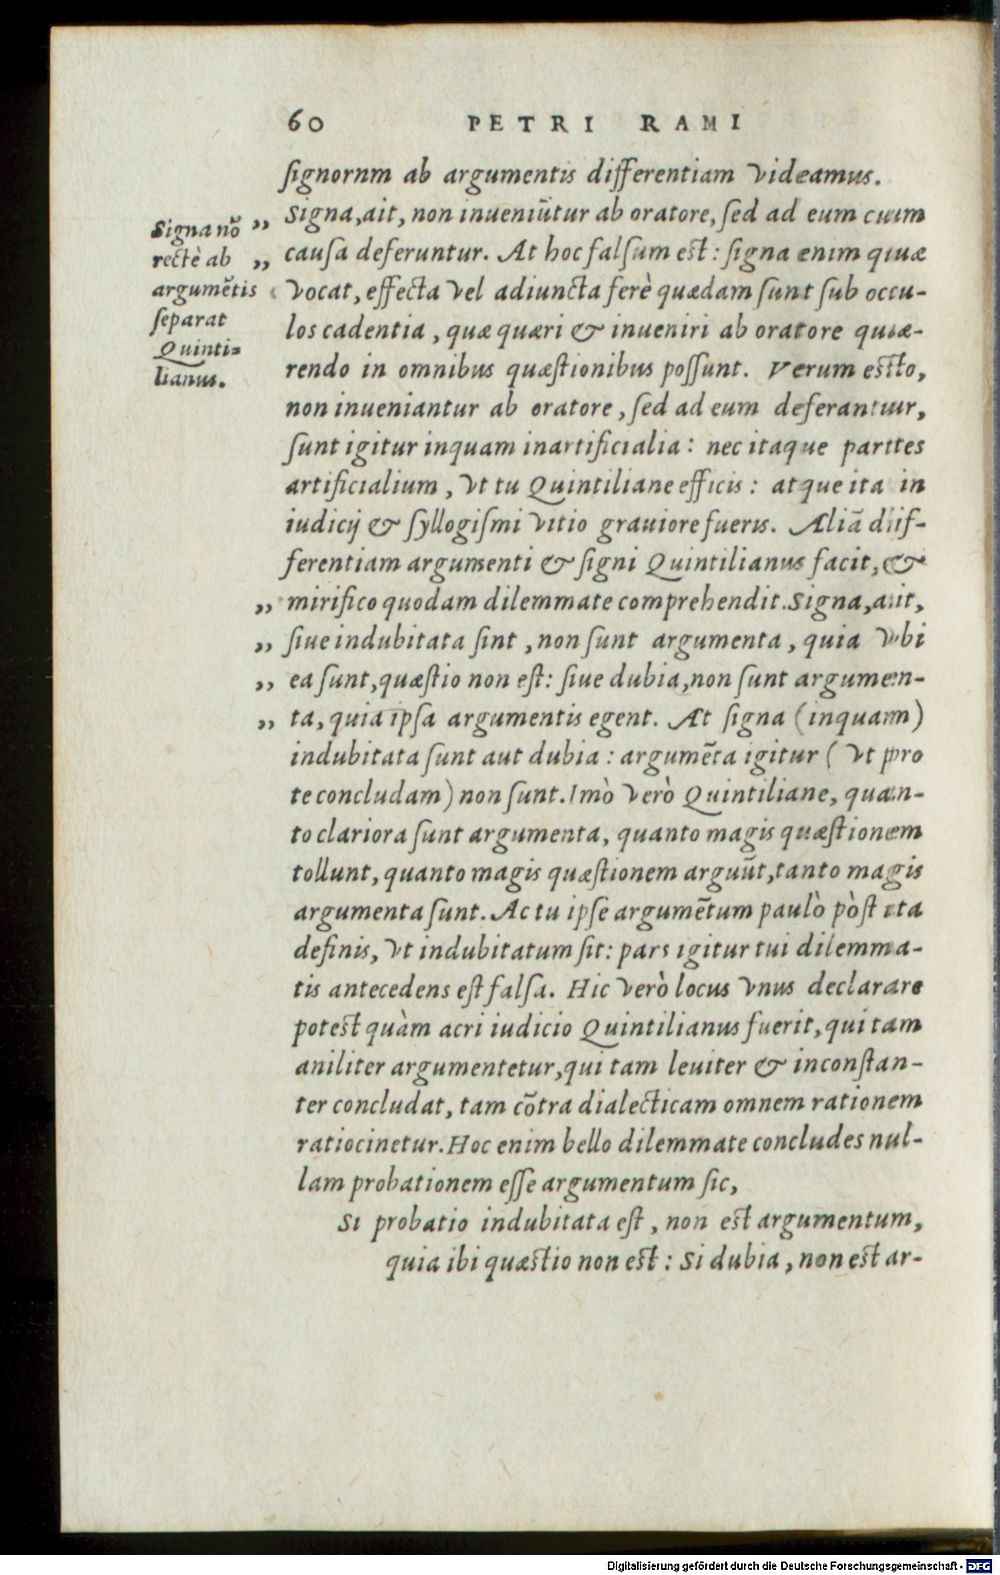 60 PETRI RAMI
ſignornm ab argumentis differentiam videamus.
Signa,ait, non inueniūtur ab oratore, ſed ad eum cum
cauſa deferuntur. At hoc falſum eſt: ſigna enim quæ
vocat, effecta vel adiuncta ferè quædam ſunt ſub occu-
los cadentia, quæ quæri & inueniri ab oratore quæ-
rendo in omnibus quæſtionibus poſſunt. Verum eſto,
non inueniantur ab oratore, ſed ad eum deferantur,
ſunt igitur inquam inartificialia: nec itaque partes
artificialium, vt tu Quintiliane efficis: atque ita in
iudicij & ſyllogiſmi vitio grauiore fueris. Aliā dif-
ferentiam argumenti & ſigni Quintilianus facit, &
„ mirifico quodam dilemmate comprehendit. Signa, ait,
„ ſiue indubitata ſint, non ſunt argumenta, quia vbi
„ ea ſunt, quæſtio non eſt: ſiue dubia, non ſunt argumen-
„ ta, quia ipſa argumentis egent. At ſigna (inquam)
indubitata ſunt aut dubia: argumēta igitur (vt pro
te concludam) non ſunt. Imò verò Quintiliane, quan-
to clariora ſunt argumenta, quanto magis quæſtionem
tollunt, quanto magis quæſtionem arguūt, tanto magis
argumenta ſunt. Ac tu ipſe argumētum paulò pòſt ita
definis, vt indubitatum ſit: pars igitur tui dilemma-
tis antecedens eſt falſa. Hic verò locus vnus declarare
poteſt quàm acri iudicio Quintilianus fuerit, qui tam
aniliter argumentetur, qui tam leuiter & inconſtan-
ter concludat, tam cōtra dialecticam omnem rationem
ratiocinetur. Hoc enim bello dilemmate concludes nul-
lam probationem eſſe argumentum ſic,
Si probatio indubitata eſt, non eſt argumentum,
quia ibi quæſtio non eſt: Si dubia, non eſt ar-
Signa nō „
rectè ab „
argumētis
ſeparat
Quinti-
lianus.
Digitalisierung gefördert durch die Deutsche Forschungsgemeinschaft - DFG